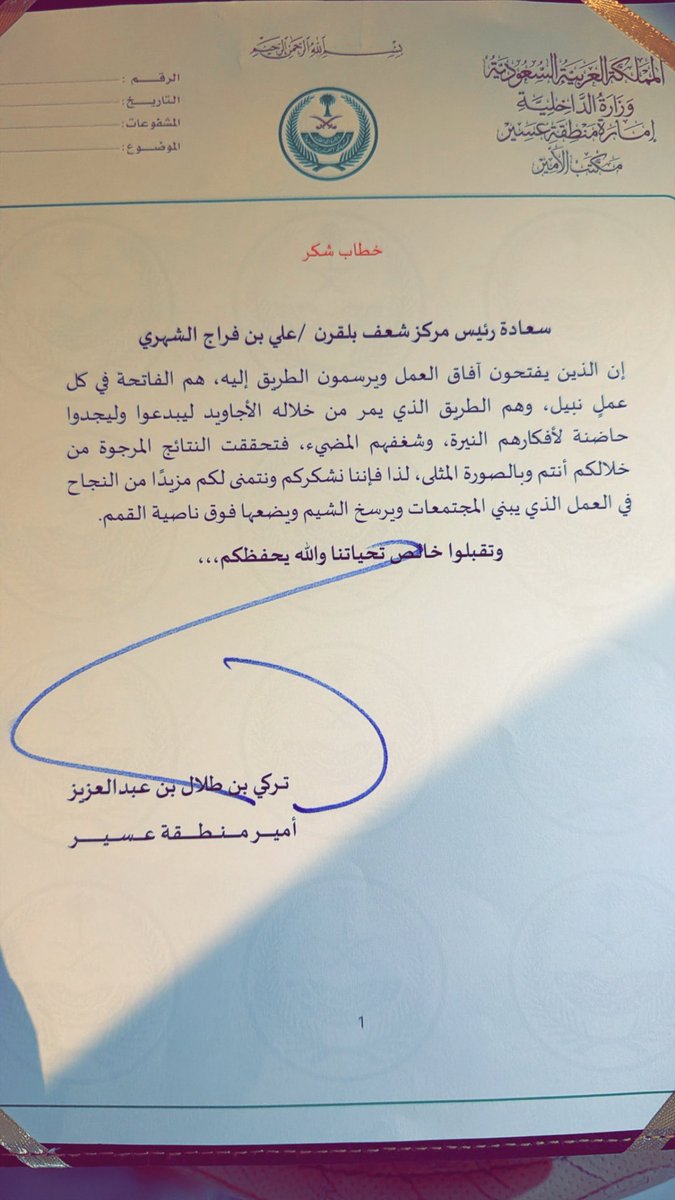 بسم الله الرحمن الرحيم
المملكة العربية السعودية
وزارة الداخلية
إمارة منطقة عسير
مكتب الأمير
الرقم :
التاريخ :
المشفوعات :
الموضوع :
خطاب شكر
سعادة رئيس مركز شعف بلقرن /علي بن فراج الشهري
إن الذين يفتحون آفاق العمل ويرسمون الطريق إليه، هم الفاتحة في كل
عملٍ نبيل، وهم الطريق الذي يمر من خلاله الأجاويد ليبدعوا وليجدوا
حاضنة لأفكارهم النيرة، وشغفهم المضيء، فتحققت النتائج المرجوة من
خلالكم أنتم وبالصورة المثلى، لذا فإننا نشكركم ونتمنى لكم مزيدًا من النجاح
في العمل الذي يبني المجتمعات ويرسخ الشيم ويضعها فوق ناصية القمم.
وتقبلوا خالص تحياتنا والله يحفظكم،،،
تركي بن طلال بن عبدالعزيز
أمير منطقة عسير
1